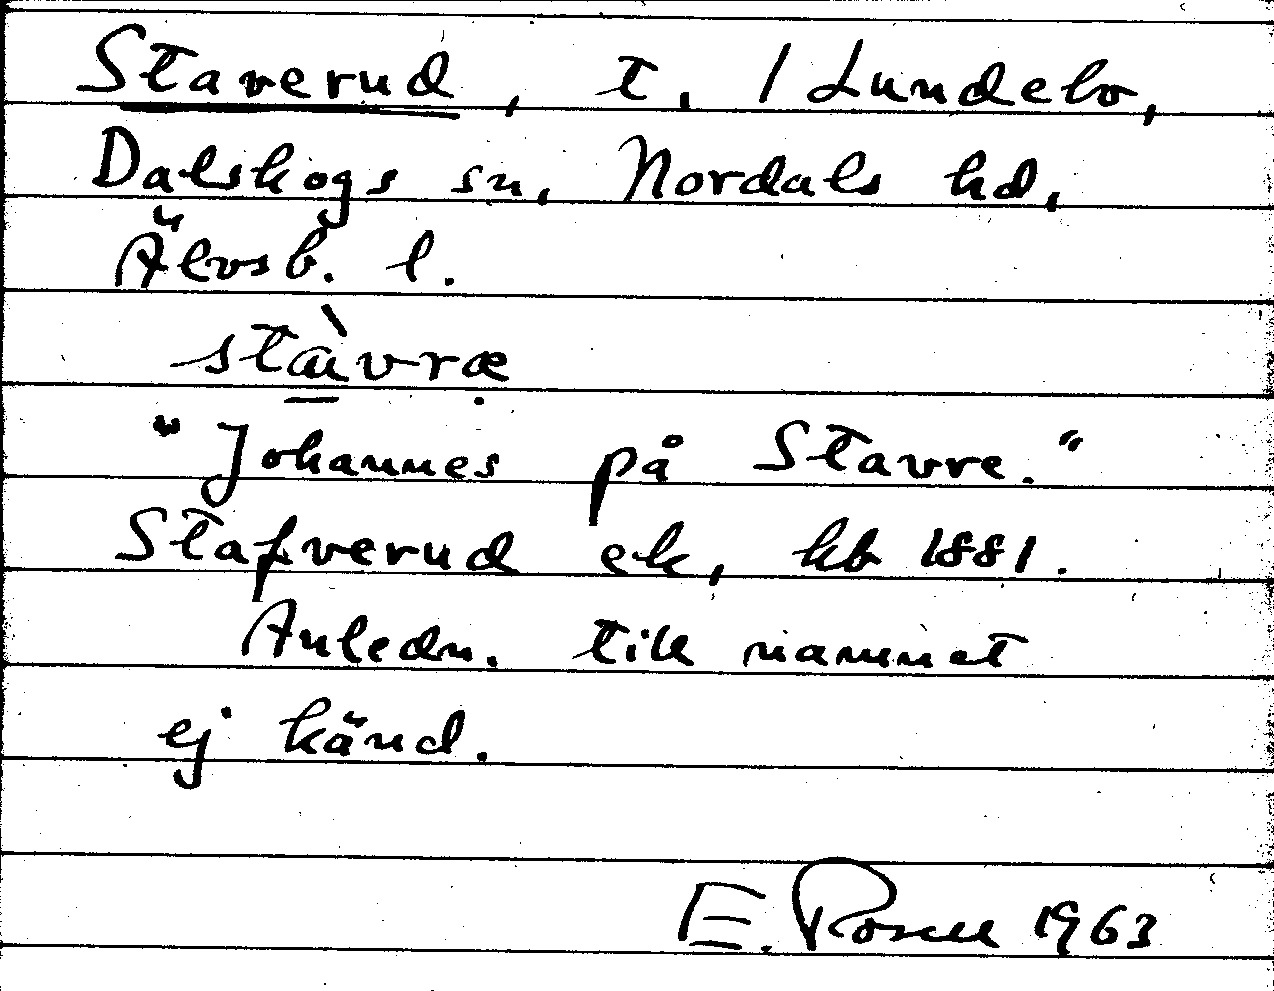 Staverud, t. 1 Lundebo,
Dalskogs sn, Nordals hd,
Älvsb. l.
stàvræ
"Johannes på Stavre."
Stafverud ek, kb 1881.
Anledn. till namnet
ej känd.
E. Rosell 1963